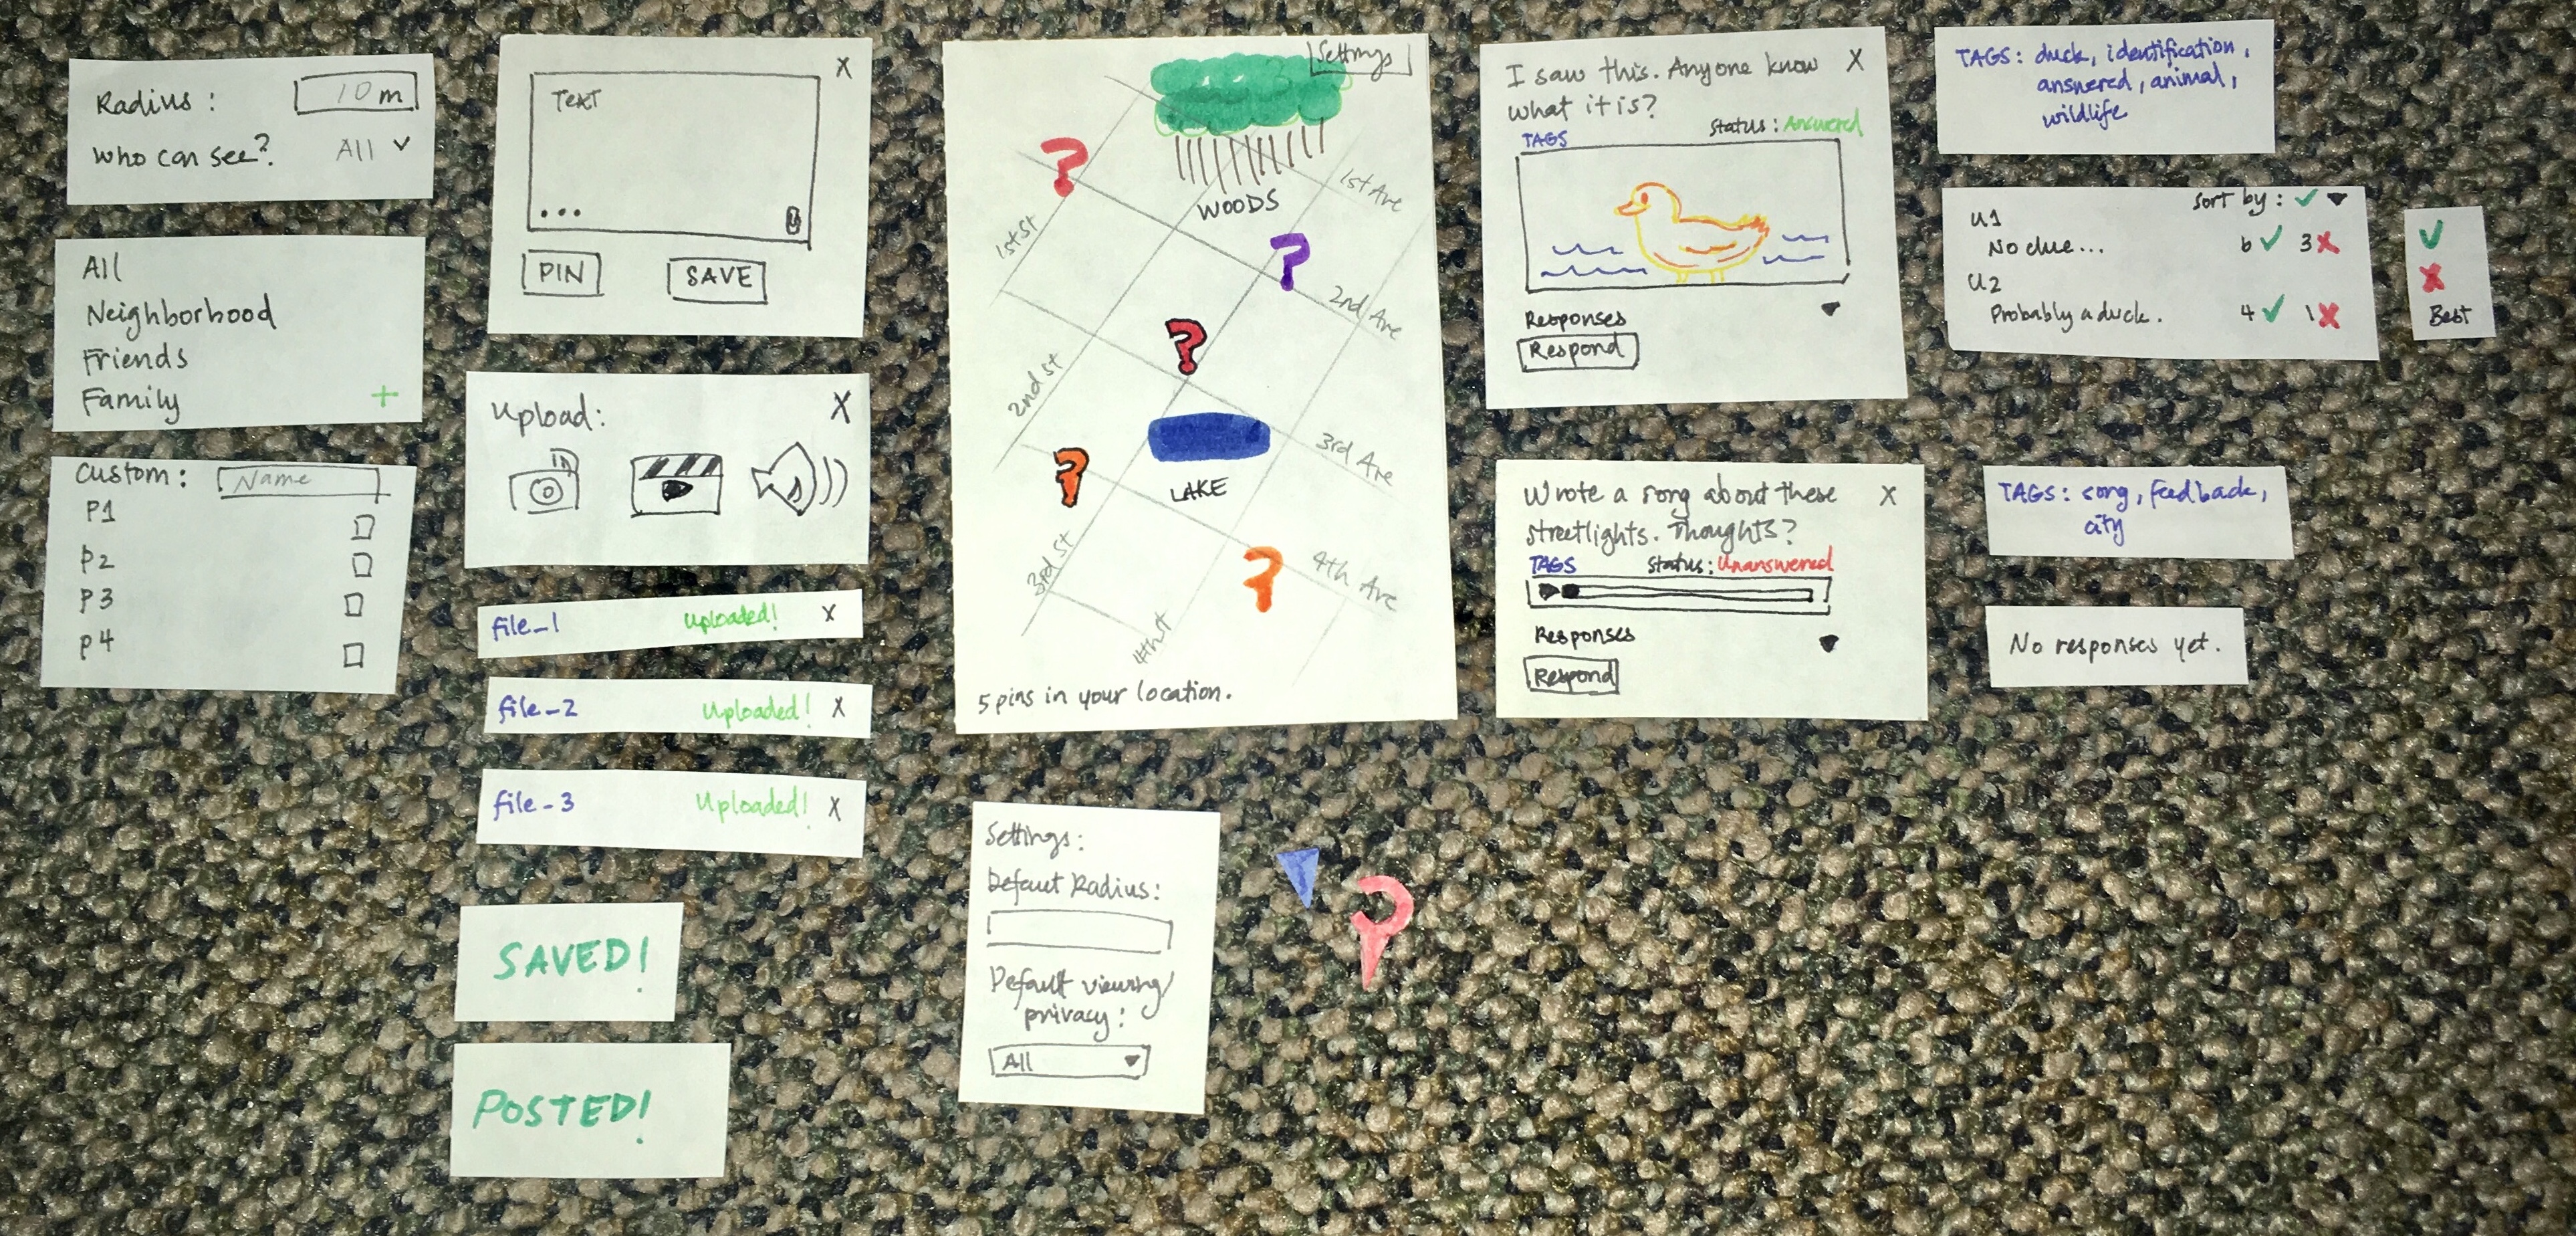 Radius: 10 m
Who can see? All
All
Neighborhood
Friends
Family +
Custom: Name
P1
P2
P3
P4
X
TEXT
...
PIN SAVE
Upload: X
file_1 Uploaded! X
file_2 Uploaded! X
file_3 Uploaded! X
SAVED!
POSTED!
Settings
WOODS
1st Ave
1st St
2nd Ave
2nd St
3rd Ave
LAKE
3rd St
4th Ave
4th St
5 pins in your location.
Settings:
Default Radius:
Default viewing
privacy:
All
I saw this. Anyone know X
what it is?
TAGS Status: Answered
Responses
Respond
Wrote a song about these X
streetlights. Thoughts?
TAGS Status: Unanswered
Responses
Respond
TAGS: duck, identification,
answered, animal,
wildlife
Sort by: ✓
U1
No clue... 6 ✓ 3 X
U2
Probably a duck. 4 ✓ 1 X
✓
X
Best
TAGS: song, feedback,
city
No responses yet.